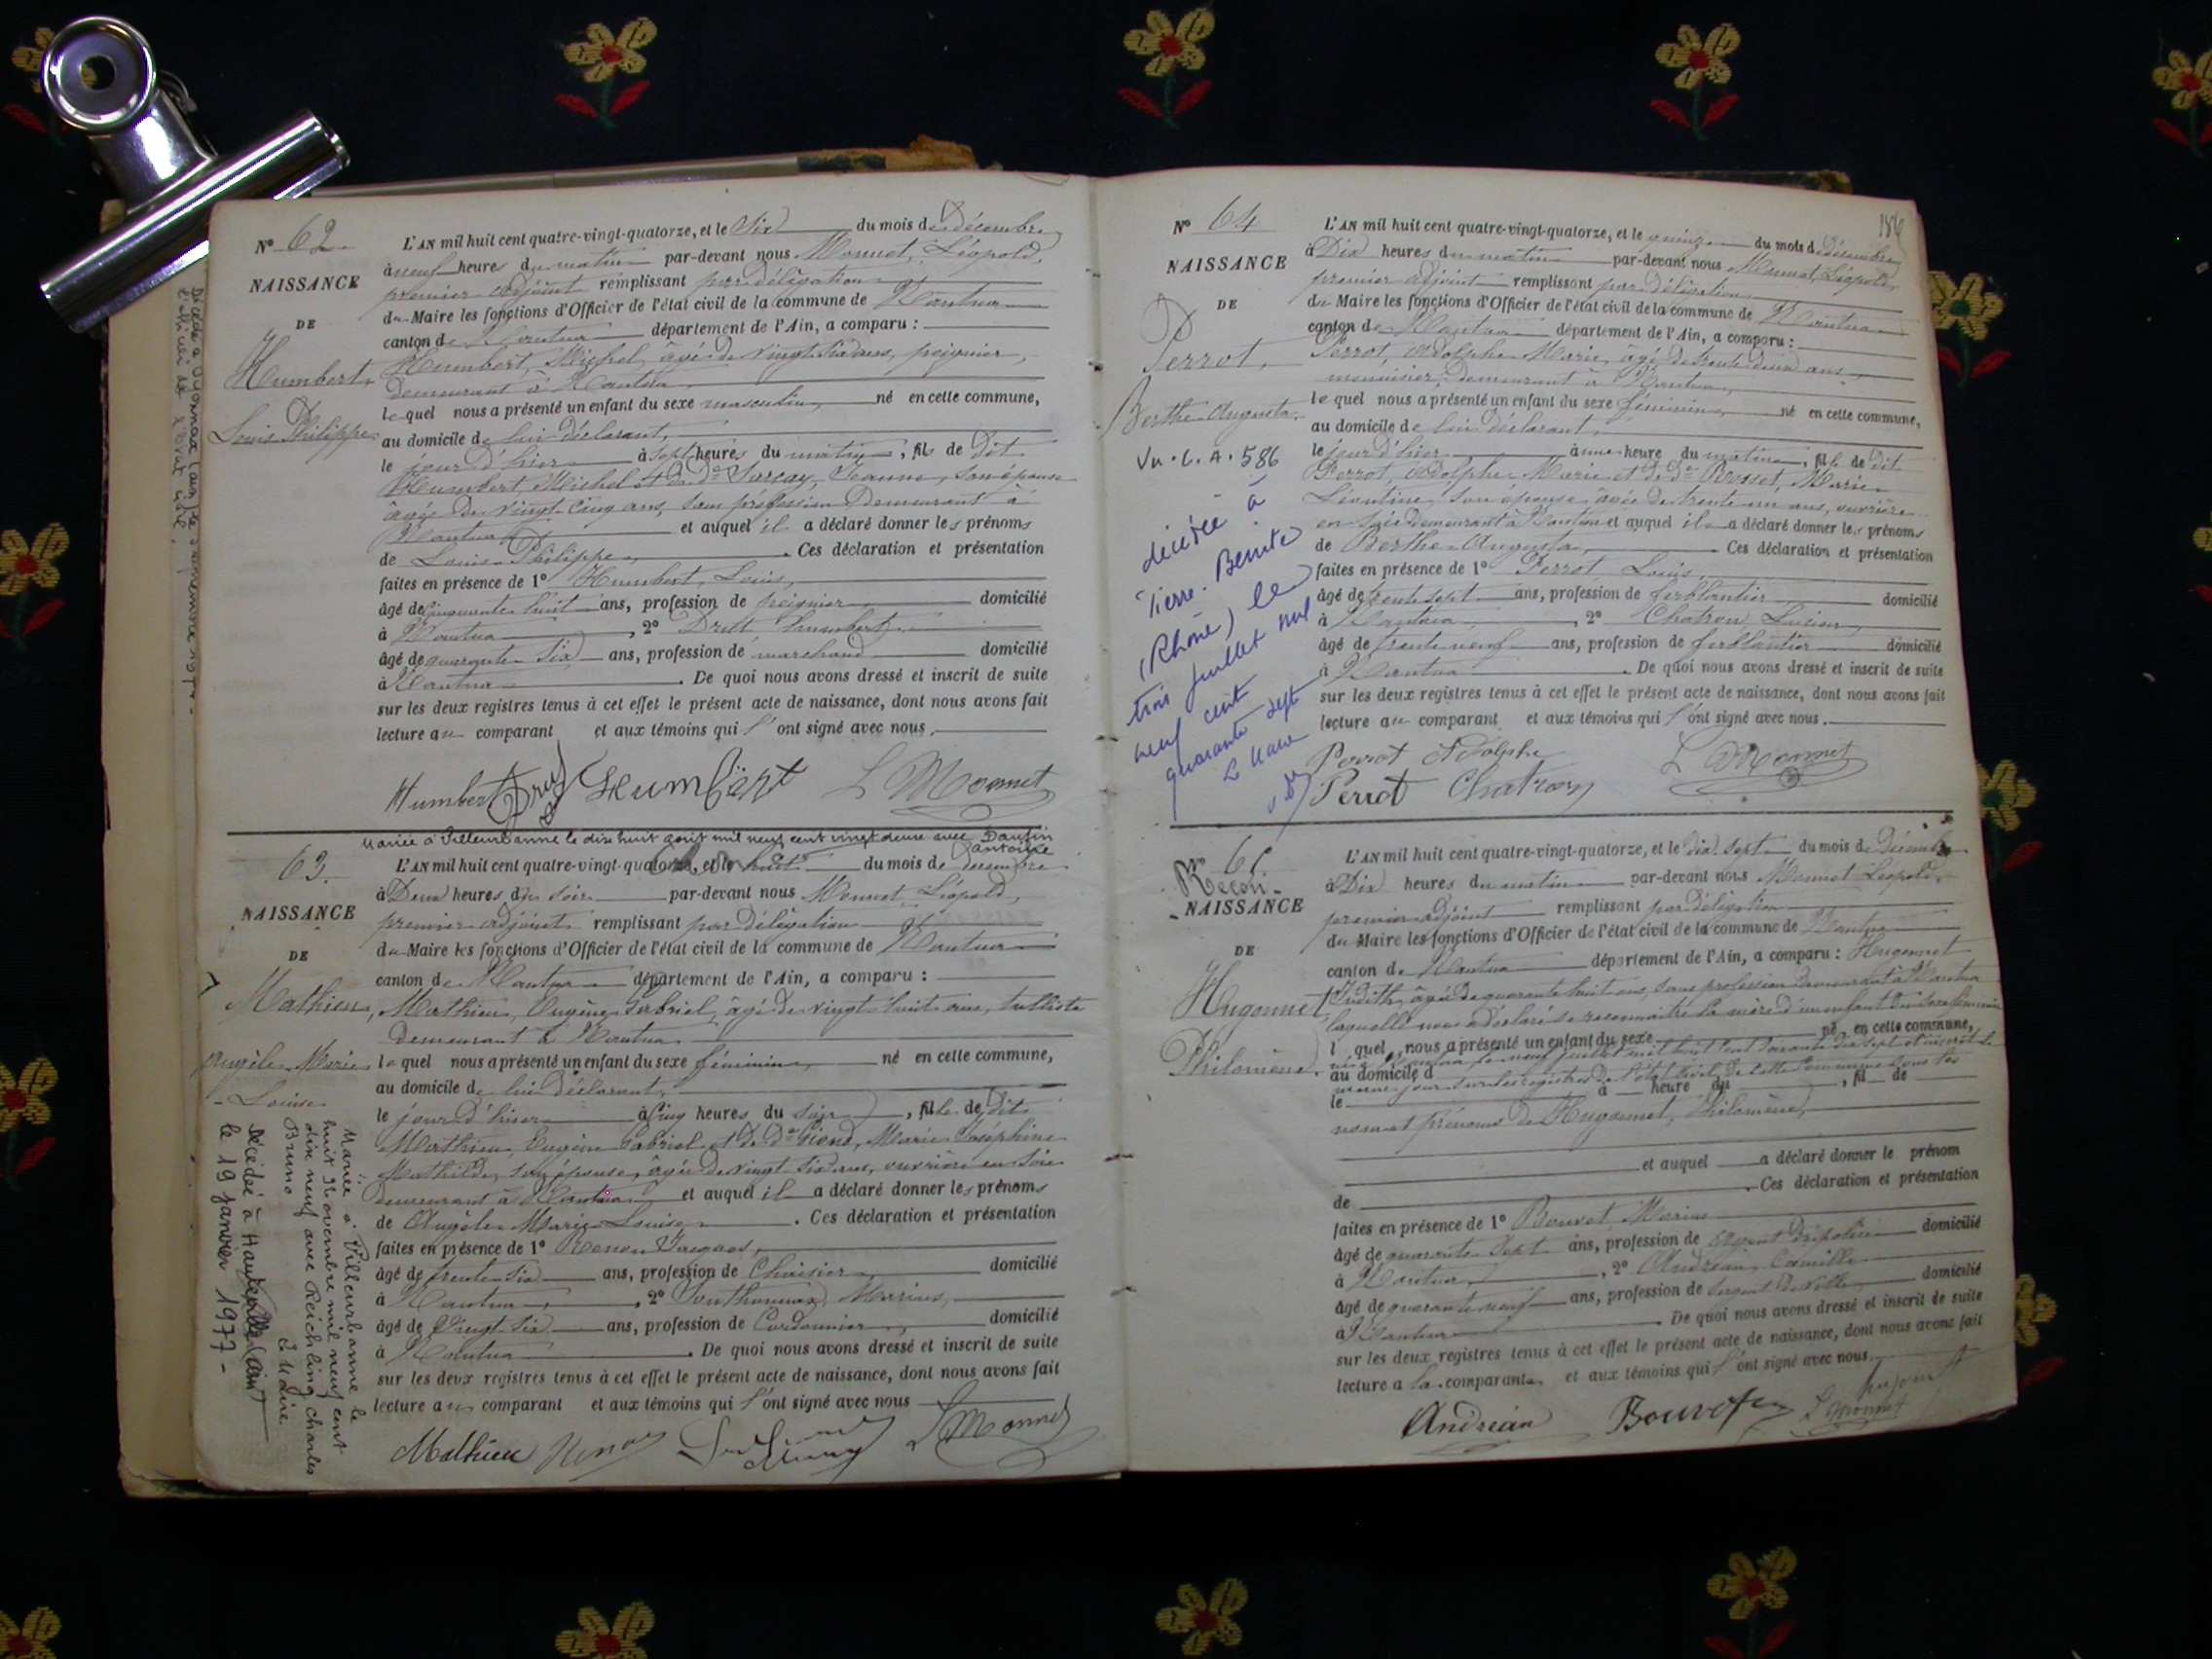 N° 62
NAISSANCE
DE
Humbert,
Louis Philippe
L'AN mil huit cent quatre-vingt-quatorze, et le six du mois de décembre
à neuf heures du matin par-devant nous Monnet, Léopold,
premier adjoint remplissant par délégation
du Maire les fonctions d'Officier de l'état civil de la commune de Nantua
canton de Nantua département de l'Ain, a comparu :
Humbert, Michel, âgé de vingt six ans, peignier,
demeurant à Nantua
lequel nous a présenté un enfant du sexe masculin né en cette commune,
au domicile de lui déclarant,
le jour d'hier à sept heures du matin, fils de dit
Humbert, Michel et de De Jeanne, son épouse
âgée de vingt-cinq ans, sans profession demeurant à
Nantua et auquel il a déclaré donner les prénoms
de Louis Philippe. Ces déclaration et présentation
faites en présence de 1° Humbert, Louis,
âgé de cinquante huit ans, profession de peignier domicilié
à Nantua, 2°
âgé de quarante six ans, profession de marchand domicilié
à Nantua. De quoi nous avons dressé et inscrit de suite
sur les deux registres tenus à cet effet le présent acte de naissance, dont nous avons fait
lecture au comparant et aux témoins qui l'ont signé avec nous.
Humbert Humbert L Monnet
Mariée à Villeurbanne le dix huit août mil neuf cent vingt deux avec Dantin
Antoine
63.
NAISSANCE
DE
Mathieu,
Angèle Marie
Louise
L'AN mil huit cent quatre-vingt-quatorze, et le huit du mois de décembre
à Deux heures du soir par-devant nous Monnet, Léopold,
premier adjoint remplissant par délégation
du Maire les fonctions d'Officier de l'état civil de la commune de Nantua
canton de Nantua département de l'Ain, a comparu :
Mathieu, Eugène Gabriel, âgé de vingt huit ans, tulliste
demeurant à Nantua
lequel nous a présenté un enfant du sexe féminin né en cette commune,
au domicile de lui déclarant,
le jour d'hier à cinq heures du soir, fille de dit
Mathieu Eugène Gabriel et de De Marie Joséphine
Mathilde, son épouse, âgée de vingt six ans, ouvrière en soie
demeurant à Nantua et auquel il a déclaré donner les prénoms
de Angèle Marie Louise. Ces déclaration et présentation
faites en présence de 1° Jacques,
âgé de trente six ans, profession de Chaisier domicilié
à Nantua, 2° Marius,
âgé de vingt six ans, profession de Cordonnier, domicilié
à Nantua. De quoi nous avons dressé et inscrit de suite
sur les deux registres tenus à cet effet le présent acte de naissance, dont nous avons fait
lecture au comparant et aux témoins qui l'ont signé avec nous
Mathieu L Monnet
Mariée à Villeurbanne le
huit Novembre mil neuf cent
dix neuf avec Reichling Charles
Bruno
Décédée à Hauteville (Ain)
le 19 janvier 1977 -
N° 64
NAISSANCE
DE
Perrot,
Berthe Augusta
Vu. C. A. 586
décédée à
Pierre-Benite
(Rhône) le
trois juillet mil
neuf cent
quarante sept
L'AN mil huit cent quatre-vingt-quatorze, et le quinze du mois de décembre
à Dix heures du matin par-devant nous Monnet Léopold,
premier adjoint remplissant par délégation
du Maire les fonctions d'Officier de l'état civil de la commune de Nantua
canton de Nantua département de l'Ain, a comparu :
Perrot, Adolphe Marie, âgé de trente deux ans
menuisier, demeurant à Nantua,
lequel nous a présenté un enfant du sexe féminin né en cette commune,
au domicile de lui déclarant,
le jour d'hier à une heure du matin, fille de dit
Perrot, Adolphe Marie et de De Marie
Léontine, son épouse âgée de trente un ans, ouvrière
en soie demeurant à Nantua et auquel il a déclaré donner les prénoms
de Berthe Augusta, Ces déclaration et présentation
faites en présence de 1° Perrot Louis,
âgé de trente sept ans, profession de ferblantier domicilié
à Nantua, 2° Chatron Lucien,
âgé de trente neuf ans, profession de ferblantier domicilié
à Nantua. De quoi nous avons dressé et inscrit de suite
sur les deux registres tenus à cet effet le présent acte de naissance, dont nous avons fait
lecture au comparant et aux témoins qui l'ont signé avec nous.
Perrot Adolphe L Monnet
Perrot Chatron
N° 65
Recon-
NAISSANCE
DE
Hugonnet,
Philomène.
L'AN mil huit cent quatre-vingt-quatorze, et le dix sept du mois de décembre
à Dix heures du matin par-devant nous Monnet Léopold,
premier adjoint remplissant par délégation
du Maire les fonctions d'Officier de l'état civil de la commune de Nantua
canton de Nantua département de l'Ain, a comparu : Hugonnet
Judith, âgée de quarante huit ans, sans profession demeurant à Nantua
laquelle nous a déclaré se reconnaître la mère d'un enfant du sexe féminin
l quel nous a présenté un enfant du sexe né en cette commune,
au domicile d
le à heure du, fil de
nom et prénoms de Hugonnet, Philomène,
et auquel a déclaré donner le prénom
de Ces déclaration et présentation
faites en présence de 1° Bouvet Marius
âgé de quarante sept ans, profession de agent de police domicilié
à Nantua, 2° Andréan Camille
âgé de quarante neuf ans, profession de sergent de ville domicilié
à Nantua. De quoi nous avons dressé et inscrit de suite
sur les deux registres tenus à cet effet le présent acte de naissance, dont nous avons fait
lecture a la comparante et aux témoins qui l'ont signé avec nous.
Andréan Bouvet L Monnet